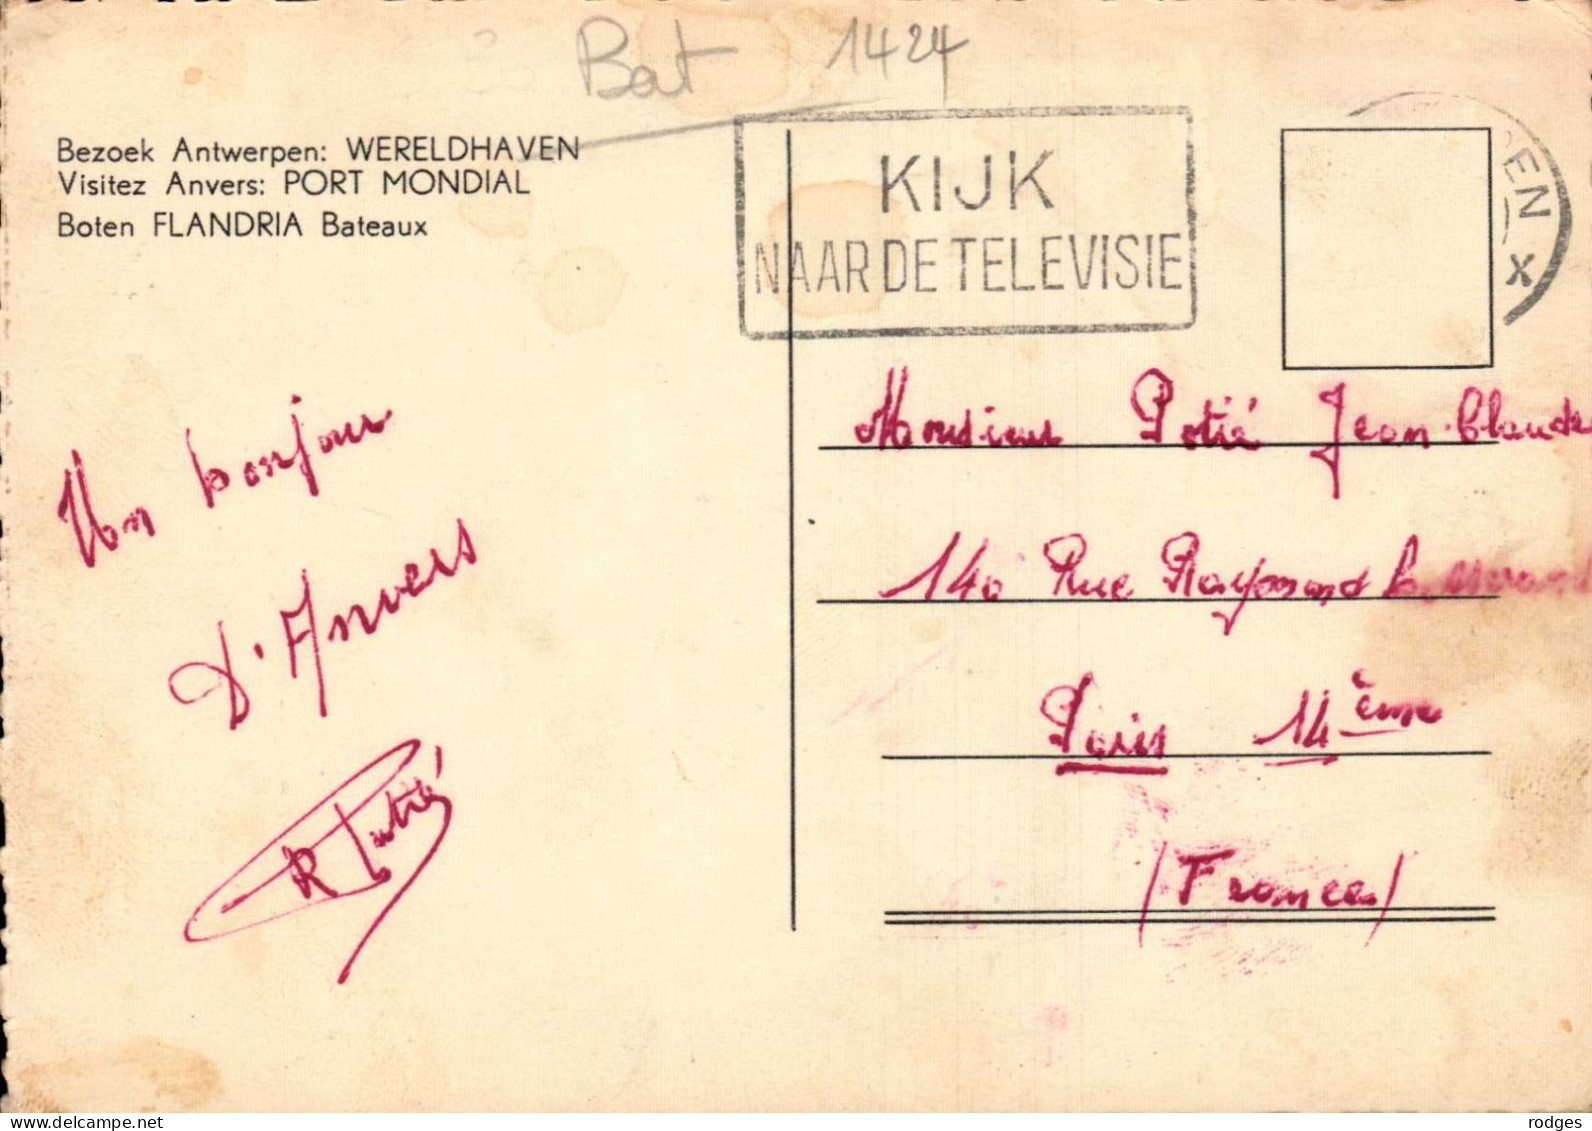 Bat 1424
Bezoek Antwerpen: WERELDHAVEN
Visitez Anvers: PORT MONDIAL
Boten FLANDRIA Bateaux
KIJK
NAAR DE TELEVISIE
EN
X
Un bonjour
D'Anvers
R Potié
Monsieur Potié Jean-Claude
140 Rue Raymond
Paris 14ème
(France)
delcampe.net
rodges